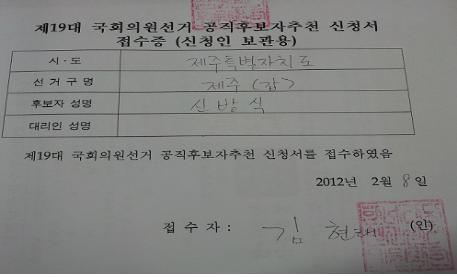 제19대 국회의원선거 공직후보자추천 신청서
접수증 (신청인 보관용)
시·도 제주특별자치도
선 거 구 명 제주 (갑)
후보자 성명 신 방 식
대리인 성명
제19대 국회의원선거 공직후보자추천 신청서를 접수하였음
2012년 2월 8일
접 수 자 : 김 현태 (인)